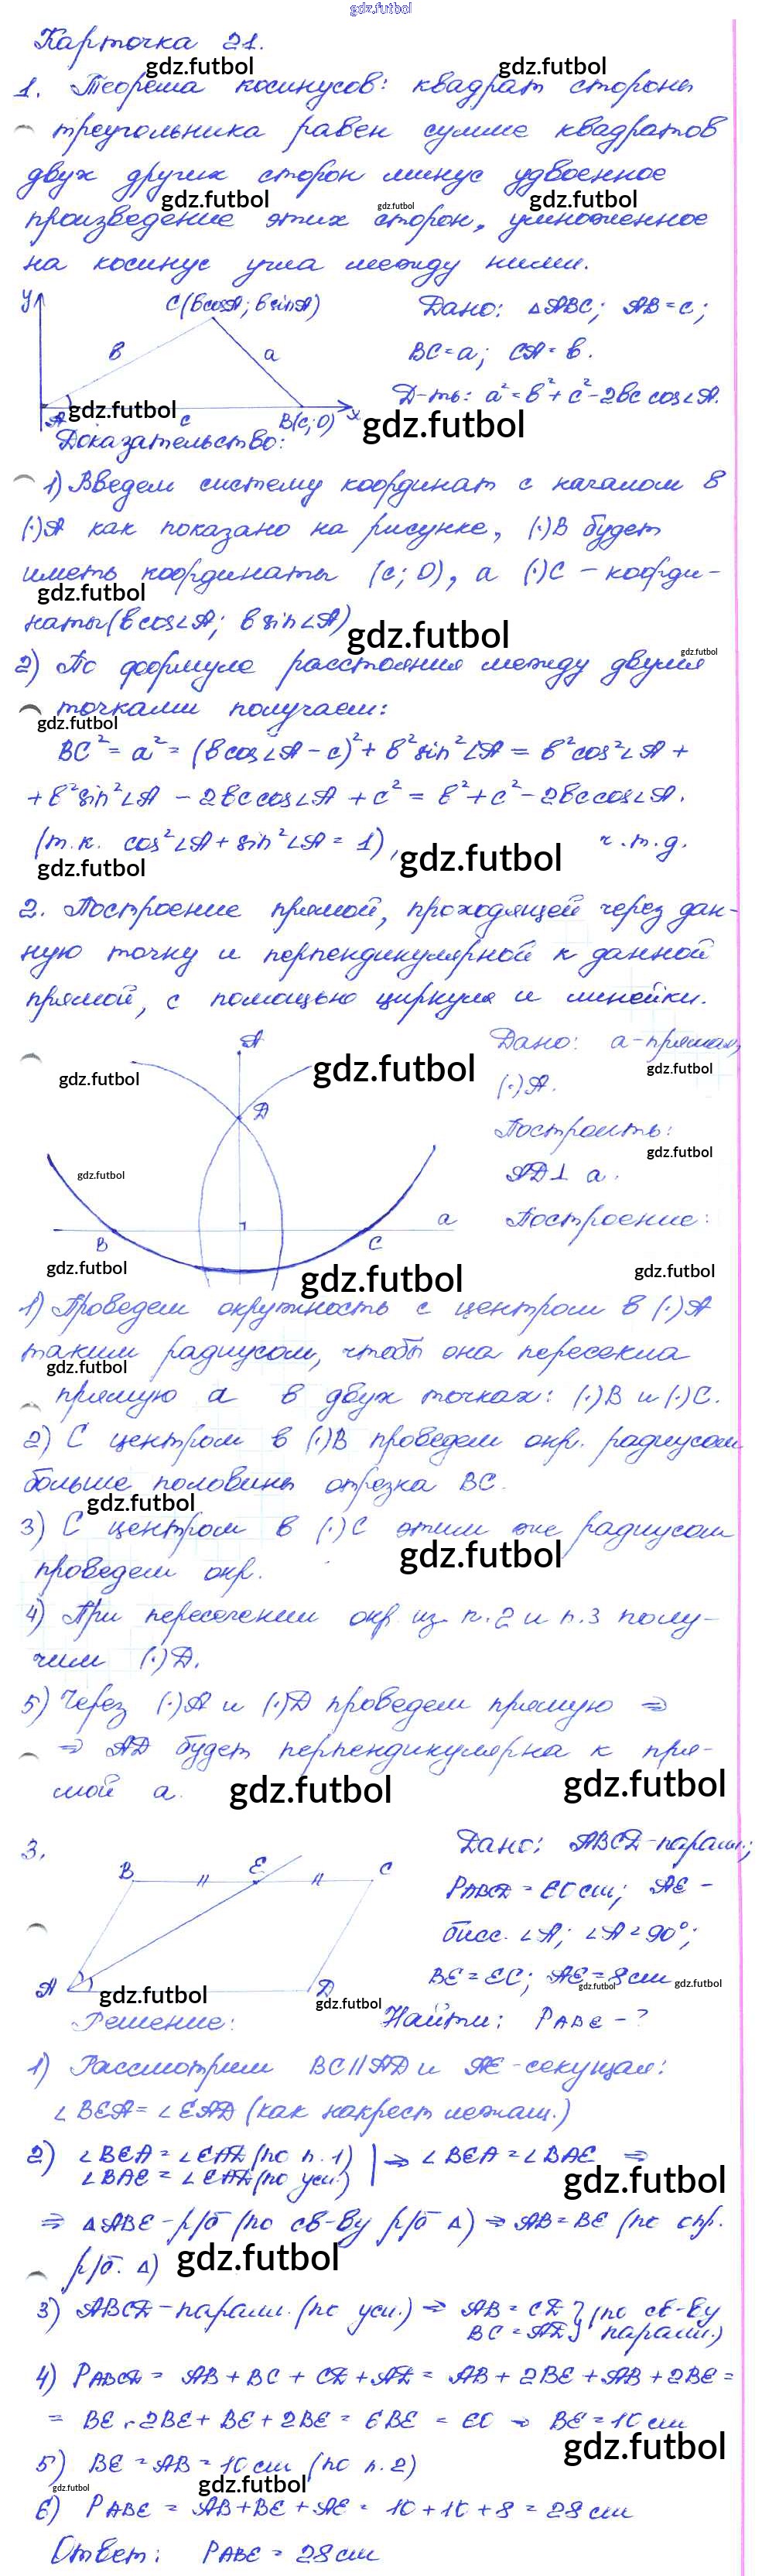 gdz.futbol
Карточка 21.
gdz.futbol gdz.futbol
1. Теорема косинусов: квадрат стороны
треугольника равен сумме квадратов
двух других сторон минус удвоенное
gdz.futbol gdz.futbol gdz.futbol
произведение этих сторон, умноженное
на косинус угла между ними.
y C(bcosA; bsinA) Дано: △ABC; AB=c;
b a BC=a; CA=b.
Д-ть: a²=b²+c²-2bc cos∠A.
A gdz.futbol c B(c;0) x gdz.futbol
Доказательство:
1) Введем систему координат с началом в
(·)A как показано на рисунке, (·)B будет
иметь координаты (c; 0), а (·)C – коорди-
gdz.futbol
наты (bcos∠A; bsin∠A)
gdz.futbol
2) По формуле расстояния между двумя
gdz.futbol
точками получаем:
gdz.futbol
BC²=a²=(bcos∠A-c)²+b²sin²∠A=b²cos²∠A+
+b²sin²∠A-2bccos∠A+c²=b²+c²-2bccos∠A.
(т.к. cos²∠A+sin²∠A=1), ч.т.д.
gdz.futbol gdz.futbol
2. Построение прямой, проходящей через дан-
ную точку и перпендикулярной к данной
прямой, с помощью циркуля и линейки.
A Дано: a-прямая,
gdz.futbol gdz.futbol gdz.futbol
(·)A.
D Построить:
gdz.futbol
gdz.futbol AD⊥a.
B C a Построение:
gdz.futbol gdz.futbol gdz.futbol
1) Проведем окружность с центром в (·)A
таким радиусом, чтобы она пересекла
gdz.futbol
прямую a в двух точках: (·)B и (·)C.
2) С центром в (·)B проведем окр. радиусом
больше половины отрезка BC.
gdz.futbol
3) С центром в (·)C этим же радиусом
gdz.futbol
проведем окр.
4) При пересечении окр из п.2 и п.3 полу-
чим (·)D.
5) Через (·)A и (·)D проведем прямую ⇒
⇒ AD будет перпендикулярна к пря-
мой a.
gdz.futbol gdz.futbol
3. Дано: ABCD-парал.;
B E C PABCD=60см; AE-
бисс. ∠A; ∠A<90°;
BE=EC; AE=8см
A D gdz.futbol gdz.futbol gdz.futbol gdz.futbol
Решение: Найти: PABE-?
1) Рассмотрим BC||AD и AE-секущая:
∠BEA=∠EAD (как накрест лежащ.)
2) ∠BEA=∠EAD (по п.1) | ⇒ ∠BEA=∠BAE ⇒
∠BAE=∠EAD (по усл.)
gdz.futbol
⇒ △ABE-р/б (по св-ву р/б △) ⇒ AB=BE (по опр.
р/б. △)
gdz.futbol
3) ABCD-парал. (по усл.) ⇒ AB=CD } (по св-ву
BC=AD } парал.)
4) PABCD=AB+BC+CD+AD=AB+2BE+AB+2BE=
=BE+2BE+BE+2BE=6BE=60 ⇒ BE=10см
gdz.futbol
5) BE=AB=10см (по п.2)
gdz.futbol gdz.futbol
6) PABE=AB+BE+AE=10+10+8=28см
Ответ: PABE=28см